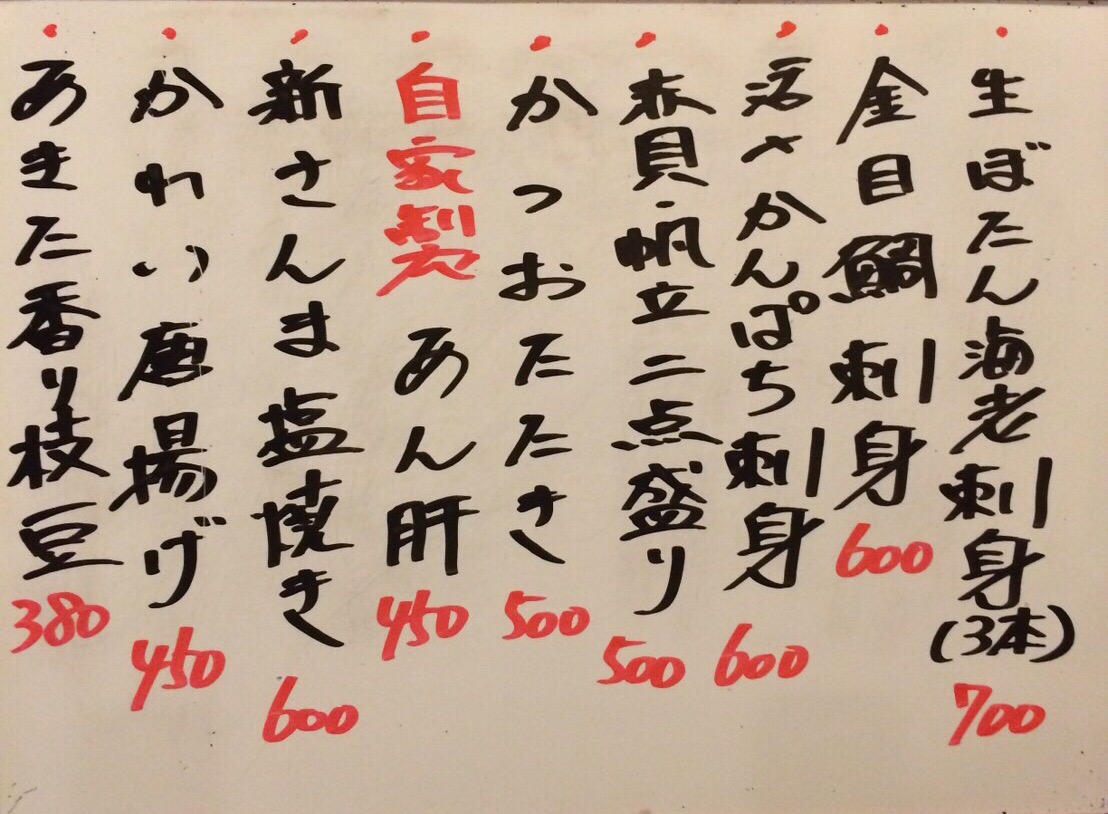 ・生ぼたん海老刺身(3本) 700
・金目鯛刺身 600
・活〆かんぱち刺身 600
・赤貝・帆立二点盛り 500
・かつおたたき 500
・自家製 あん肝 450
・新さんま塩焼き 600
・かれい唐揚げ 450
・あきた香り枝豆 380